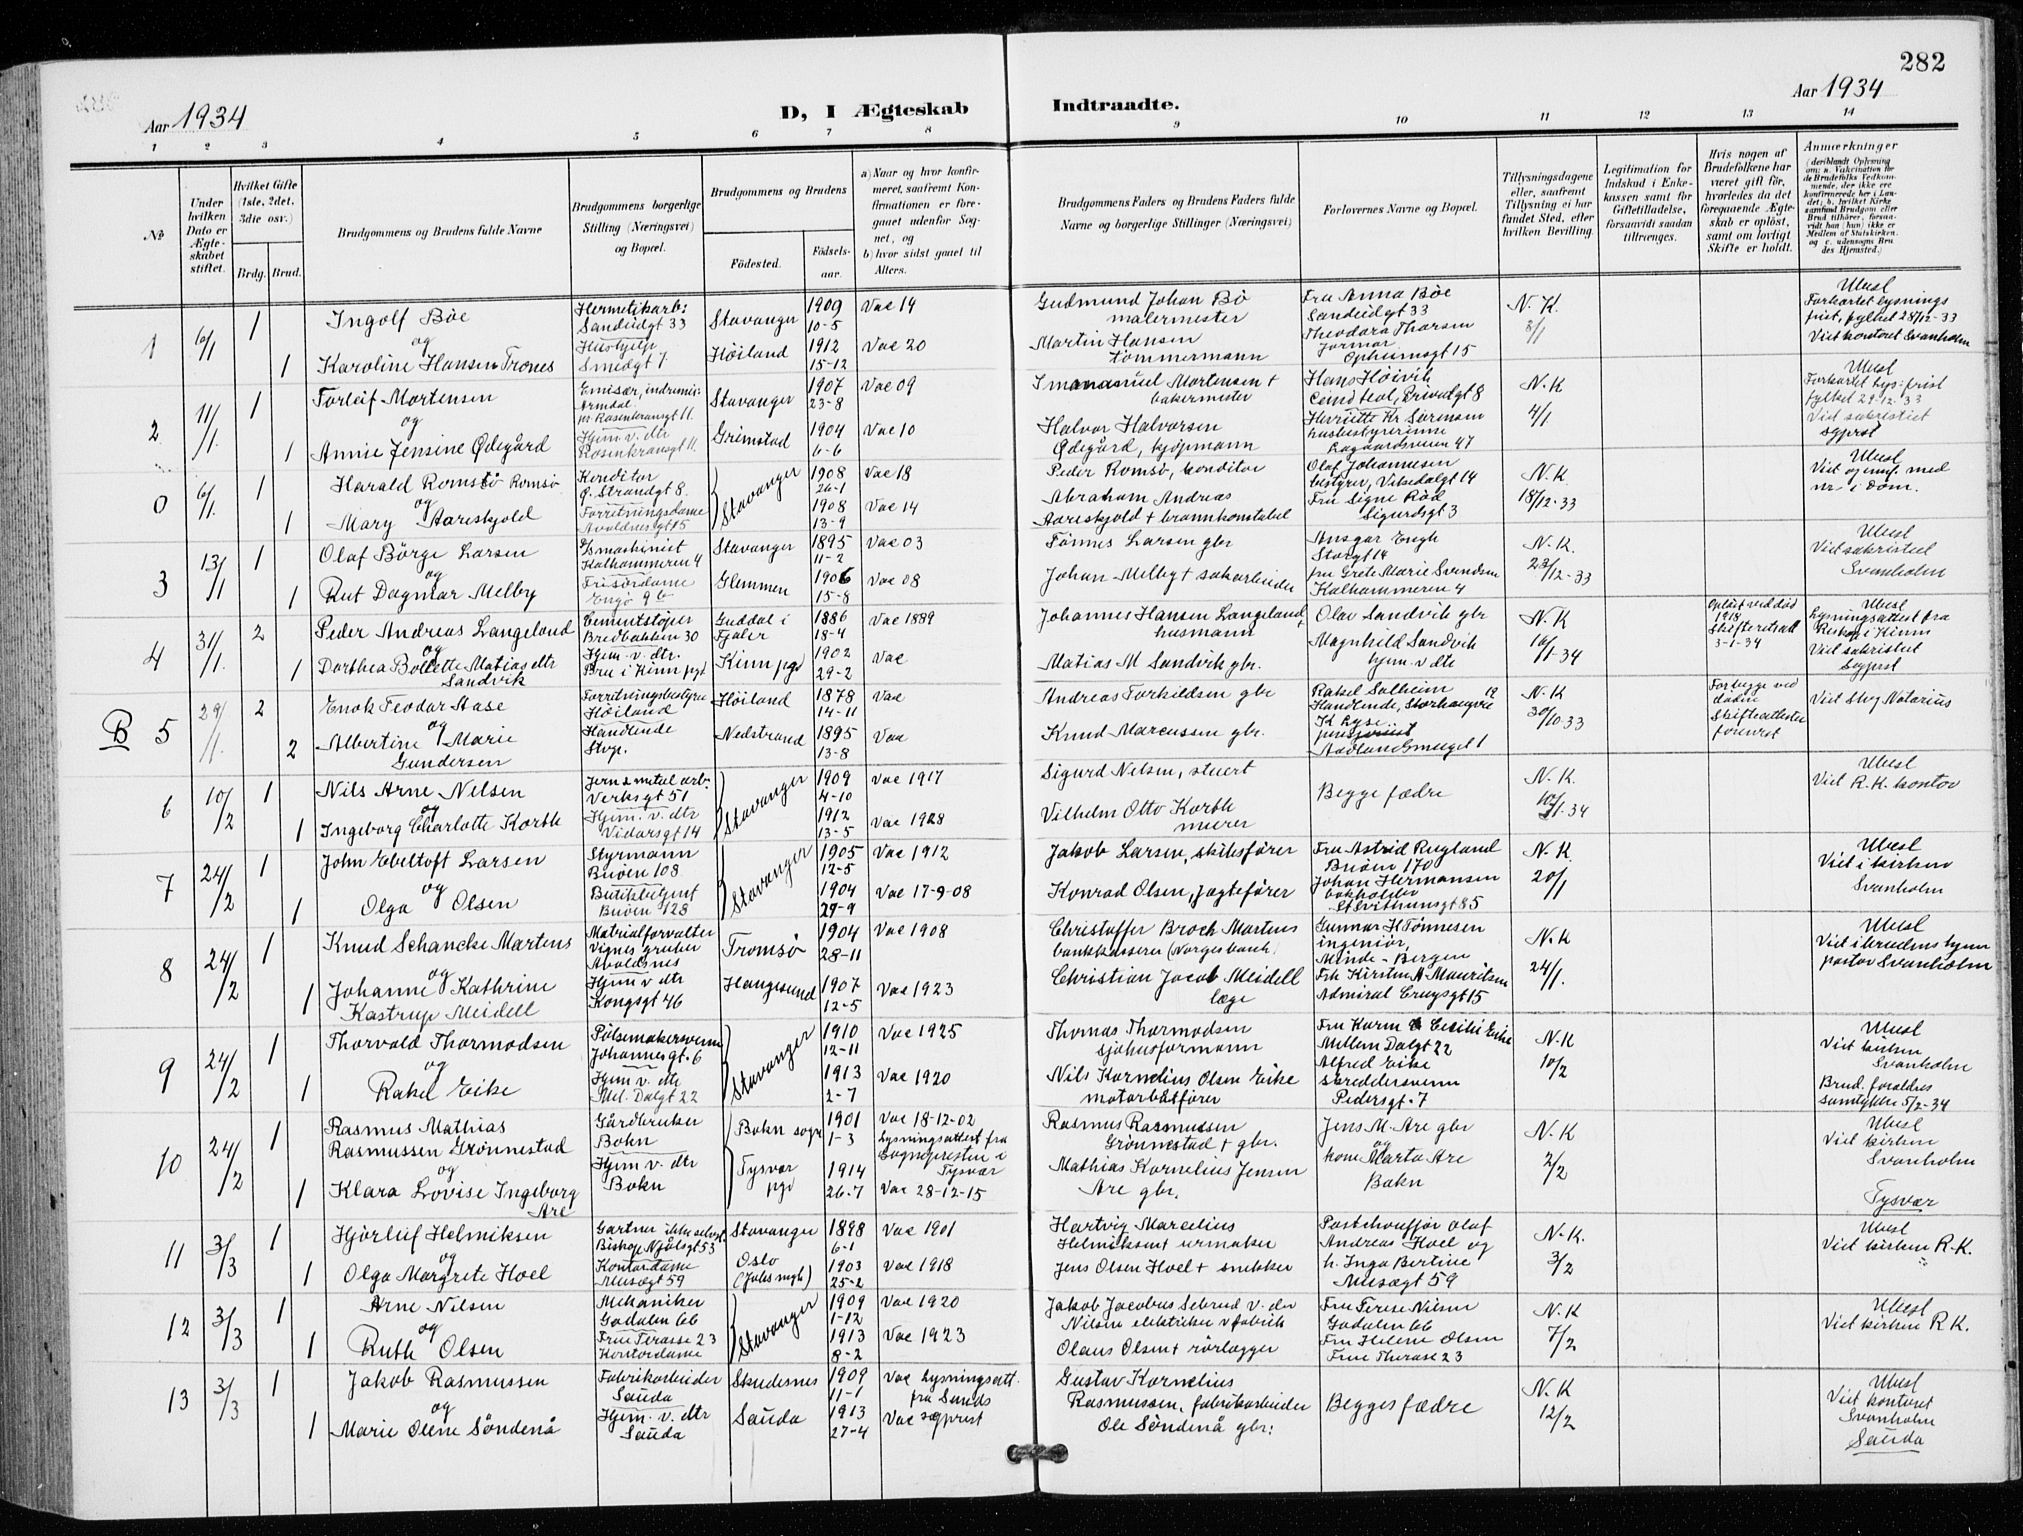 282
Aar 1934
D, I Ægteskab
Indtraadte.
Aar 1934
1 2 3 4 5 6 7 8 9 10 11 12 13 14
No
Under hvilken Dato er Ægteskabet stiftet.
Hvilket Gifte (1ste, 2det, 3die osv.)
Brdg. Brud.
Brudgommens og Brudens fulde Navne
Brudgommens borgerlige Stilling (Næringsvei) og Bopæl.
Brudgommens og Brudens
Fødested.
Fødselsaar.
a) Naar og hvor konfirmeret, saafremt Konfirmationen er foregaaet udenfor Sognet, og
b) hvor sidst gaaet til Alters.
Brudgommens Faders og Brudens Faders fulde Navne og borgerlige Stillinger (Næringsvei)
Forlovernes Navne og Bopæl.
Tillysningsdagene eller, saafremt Tillysning ei har fundet Sted, efter hvilken Bevilling.
Legitimation for Indskud i Enkekassen samt for Giftetilladelse, forsaavidt saadan tiltrænges.
Hvis nogen af Brudefolkene har været gift før, hvorledes da det foregaaende Ægteskab er opløst, samt om lovligt Skifte er holdt.
Anmærkninger
1 6/1 1 Ingolf Böe Hermetikarb: Sandeidgt 33 Stavanger 1909 10-5 Vac 14 Gudmund Johan Bö malermester Fru Anna Böe Sandeidgt 33 N. K. 8/1 Ubesl Forkortet lysnings frist, fylket 28/12-33
og
1 Karoline Hansen Trones Hushjelp Smedgt 7 Höiland 1912 15-12 Vac 20 Martin Hansen tömmermann Theodora Thorsen Jormor Ophiimsgt 15 Viet kontoret Svanholm
2 11/1. 1 Torleif Mortensen Emisær, indremis: Stavanger 1907 23-8 Vac 09 Immanuel Mortensen + bakermester Hans Höivik Cand teol, Erviedgt 8 N. K 4/1. Ubesl Forkortet lys: frist fylket 29-12-33
og
1 Annie Jensine Ødegård Hjem. v. dtr Rosenkransgt 11. Grimstad 1904 6-6 Vac 10 Halvor Halvorsen Ødegård, kjöpmann Henriette Kr Sörensen husbestyrerinne Lagaardsveien 47 Viet sakristiet sgprst
0 6/1. 1 Harald Romsö Konditor Ö. Strandgt 8. Stavanger 1908 26-1 Vac 18 Peder Romsö, Conditor Olaf Johannesen bestyrer, Vikedalgt 14 N. K. 18/12-33 Ubesl Viet og innf. med nr. i Dom.
og
1 Mary Aareskjold Forretningsdame Avaldnesgt 15 1908 13-9 Vac 14 Abraham Andreas Aareskjold + brannkonstabel Fru Signe Röd Sigurdsgt 3
3 13/1 1 Olaf Börge Larsen Ismaskinist Kalhammeren 4 Stavanger 1895 11-2 Vac 03 Tönnes Larsen gbr Ansgar Engh Storgt 14 N. K. 23/12-33 Ubesl Viet sakristiet Svanholm
og
1 Rut Dagmar Melby Frisördame Engö 9 b Glemmen 1906 15-8 Vac 08 Johan Melby + sakarbeider fru Grete Marie Svendsen Kalhammeren 4
4 31/1. 2 Peder Andreas Langeland Cementstöper Bredbakken 30 Guddal i Fjaler 1886 18-4 Vac 1889 Johannes Hansen Langeland, husmann Olav Sandvik gbr N. K 16/1-34 Oplöst ved död 1918 Skifteretsatt 3-1-34 Ubesl Lysningsattest fra Reskap i Kinn
og
1 Dorthea Bollette Matias dtr Sandvik Hjem. v. dtr. Bru i Kinn pgd Kinn pgd 1902 29-2 Vac Matias M Sandvik gbr. Magnhild Sandvik hjem. v dtr Viet sakristiet Sogprst
B 5 29/1. 2 Enok Teodor Aase Forretningsbestyrer Höiland Höiland 1878 14-11 Vac Andreas Torkildsen gbr Rakel Solheim Handlende, Storhaugvei 12 N. K 30/10 33 Forbygge ved döden Skifteattester forevist Viet Stvg Notarius
og
2 Albertine Marie Gundersen Handlende Stvgr. Nedstrand 1895 13-8 Vac Knud Marcussen gbr. K Lyse Aadlandsmuget 1
6 10/2 1 Nils Arne Nilsen Jern & metal arb. Verksgt 51 Stavanger 1909 4-10 Vac 1917 Sigurd Nilsen, stuert Begge fædre N. K. 10/1-34 Ubesl Viet R. K. kontor
og
1 Ingeborg Charlotte Korth Hjem. v. dtr Vidarsgt 14 1912 13-5 Vac 1928 Vilhelm Otto Korth murer
7 24/2 1 John Ebeltoft Larsen Styrmann Buöen 108 Stavanger 1905 12-5 Vac 1912 Jakob Larsen, skibsförer Fru Astrid Rugland Buöen 170 N. K. 20/1 Ubesl Viet i kirken Svanholm
og
1 Olga Olsen Butikbetjent Buöen 128 1904 29-9 Vac 17-9-08 Konrad Olsen, Jagteförer Johan Hermansen bokholder St Svithunsgt 85
8 24/2 1 Knud Schancke Martens Matrialforvalter Vignes gruber Avaldsnes Tromsö 1904 28-11 Vac 1908 Christoffer Broch Martens bankkasserer (Norges bank) Gunnar H Tönnesen ingeniör, Minde - Bergen N. K 24/1. Ubesl Viet i brudens hjem pastor Svanholm
og
1 Johanne Kathrine Kastrup Meidell Hjem v dtr Kongsgt 46 Haugesund 1907 12-5 Vac 1923 Christian Jacob Meidell læge Frk Kirsten M Mauritsen Admiral Cruysgt 15
9 24/2 1 Thorvald Thormodsen Pölsemakersvenn Johannesgt. 6 Stavanger 1910 12-11 Vac 1925 Thomas Thormodsen sjöhusformann Fru Karen Cecilie Eike Mellem Dalgt 22 N. K 10/2 Ubesl Viet kirken Svanholm
og
1 Rakel Eike Hjem v. dtr Mel. Dalgt 22 1913 2-7 Vac 1920 Nils Kornelius Olsen Eike motorbåtförer Alfred Eike skreddersvenn Pedersgt. 7 Brud. foraldres samtykke 5/2-34
10 24/2 1 Rasmus Mathias Rasmussen Grönnestad Gårdbruker Bokn Bokn sogn 1901 1-3 Vac 18-12-02 Lysningsattest fra Sognepresten i Tysvær Rasmus Rasmussen Grönnestad + gbr. Jens M. Are gbr N. K 2/2 Ubesl Viet kirken Svanholm
og
1 Klara Lovise Ingeborg Are Hjem v. dtr Bokn Tysvær pgd 1914 26-7 Vac 28-12-15 Mathias Kornelius Jensen Are gbr. og kone Marta Are Bokn Tysvær
11 3/3 1 Hjörleif Helmiksen Gartner ikke selvst Biskop Njålsgt 53 Stavanger 1898 6-1 Vac 1901 Hartvig Marcelius Helmiksen + urmaker Postchauffør Olaf Andreas Hoel og N. K. 3/2 Ubesl Viet kirken R. K.
og
1 Olga Margrete Hoel Kontordame Musegt 59 Oslo 1903 25-2 Vac 1918 Jens Olsen Hoel + snekker h. Inga Bertine Musegt 59
12 3/3 1 Arne Nilsen Mekaniker Godalen 66 Stavanger 1909 1-12 Vac 1920 Jakob Jacobus Sebrud v. der Nilsen elektriker v fabrik Fru Terese Nilsen Godalen 66 N. K 7/2 Ubesl Viet kirken R K.
og
1 Ruth Olsen Frue Terasse 23 Kontordame 1913 8-2 Vac 1923 Olaus Olsen + rörlegger Fru Helene Olsen Frue Therase 23
13 3/3 1 Jakob Rasmussen Fabrikarbeider Sauda Skudesnes 1909 11-1 Vac Lysningsatt. fra Sauds Gustav Kornelius Rasmussen, fabrikarbeider Begges fædre N. K 12/2 Ubesl Viet kontoret Svanholm
og
1 Marie Olene Söndenå Hjem. v. dtr Sauda Sauda 1913 27-4 Vac sogprst Ole Söndenå gbr: Sauda